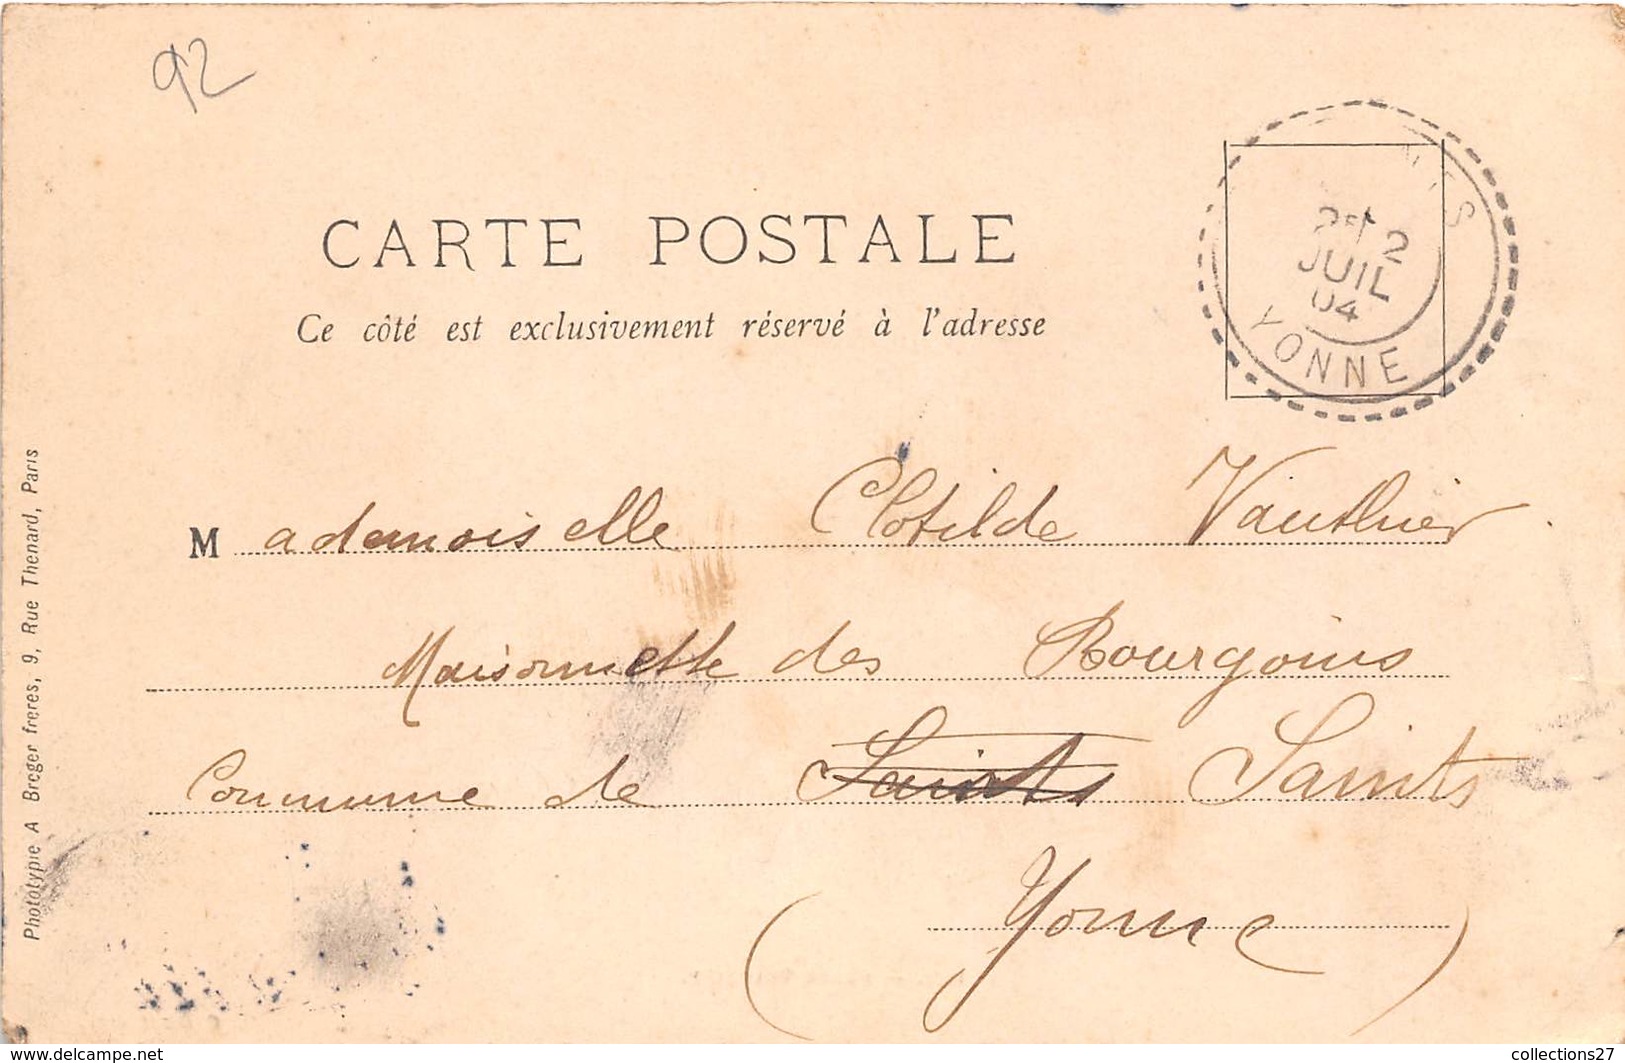 92
CARTE POSTALE
Ce côté est exclusivement réservé à l'adresse
2
JUIL
04
YONNE
Mademoiselle Clotilde Vauthier
Maisonnette des Bourgoins
Commune de Saints Saints
(Yonne)
Phototypie A Breger freres, 9, Rue Thenard, Paris
www.delcampe.net
collections27